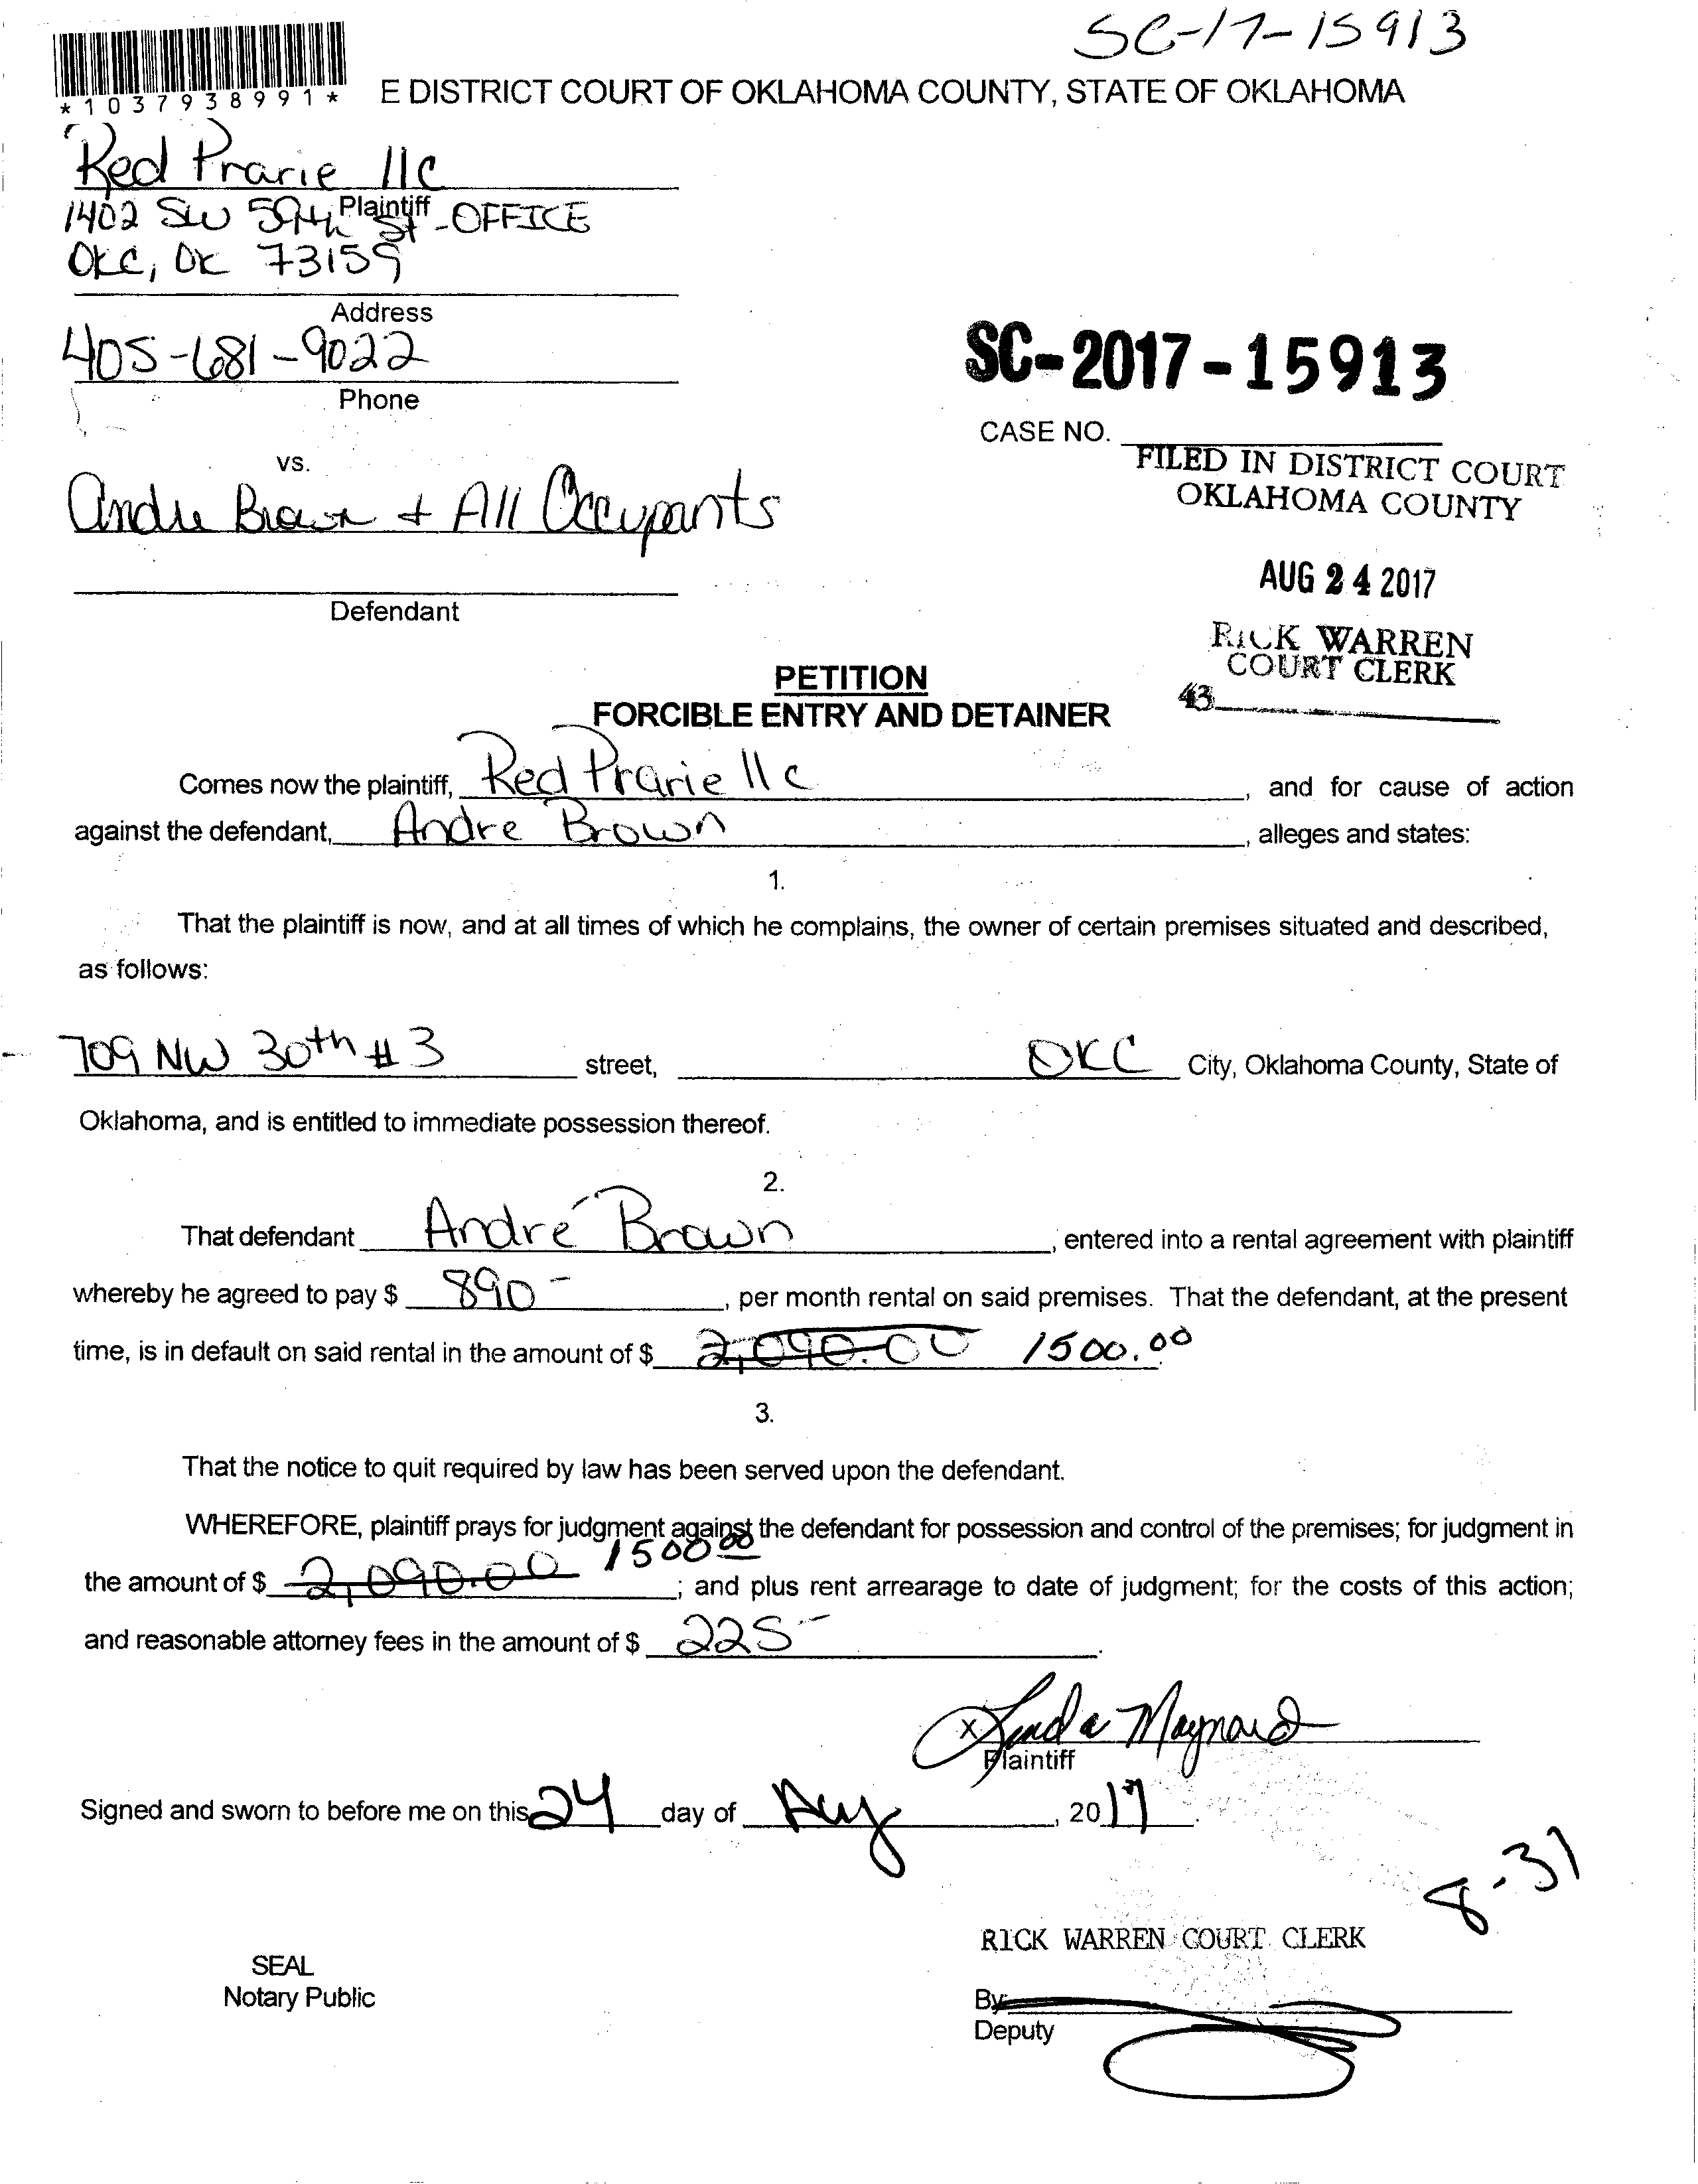 SC-17-15913
*1037938991*
E DISTRICT COURT OF OKLAHOMA COUNTY, STATE OF OKLAHOMA
Red Prarie llc
Plaintiff
1402 SW 59th St - OFFICE
OKC, OK 73159
Address
405-681-9022
Phone
SC-2017-15913
CASE NO.
vs.
FILED IN DISTRICT COURT
OKLAHOMA COUNTY
Andre Brown + All Occupants
AUG 24 2017
Defendant
RICK WARREN
COURT CLERK
43
PETITION
FORCIBLE ENTRY AND DETAINER
Comes now the plaintiff, Red Prarie llc, and for cause of action
against the defendant, Andre Brown, alleges and states:
1.
That the plaintiff is now, and at all times of which he complains, the owner of certain premises situated and described,
as follows:
709 NW 30th #3 street, OKC City, Oklahoma County, State of
Oklahoma, and is entitled to immediate possession thereof.
2.
That defendant André Brown, entered into a rental agreement with plaintiff
whereby he agreed to pay $ 890-, per month rental on said premises. That the defendant, at the present
time, is in default on said rental in the amount of $ 2,090.00 1500.00.
3.
That the notice to quit required by law has been served upon the defendant.
WHEREFORE, plaintiff prays for judgment against the defendant for possession and control of the premises; for judgment in
the amount of $ 2,090.00 1500 00; and plus rent arrearage to date of judgment; for the costs of this action;
and reasonable attorney fees in the amount of $ 225-.
x Linda Maynard
Plaintiff
Signed and sworn to before me on this 24 day of Aug, 2017.
8-31
RICK WARREN COURT CLERK
SEAL
Notary Public
By:
Deputy